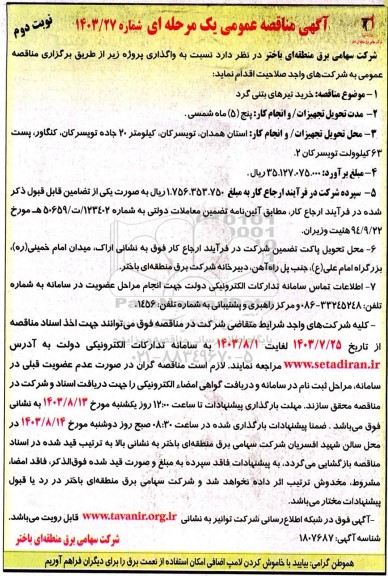 آگهی مناقصه عمومی یک مرحله ای شماره ۱۴۰۳/۲۷
نوبت دوم
شرکت سهامی برق منطقه‌ای باختر در نظر دارد نسبت به واگذاری پروژه زیر از طریق برگزاری مناقصه
عمومی به شرکت‌های واجد صلاحیت اقدام نماید:
۱- موضوع مناقصه: خرید تیرهای بتنی گرد
۲- مدت تحویل تجهیزات/ و انجام کار: پنج (۵) ماه شمسی.
۳- محل تحویل تجهیزات/ و انجام کار: استان همدان، تویسرکان، کیلومتر ۲۰ جاده تویسرکان، کنگاور، پست
۶۳ کیلوولت تویسرکان ۲.
۴- مبلغ برآورد: ۳۵.۱۲۷.۰۷۵.۰۰۰ ریال.
۵- سپرده شرکت در فرآیند ارجاع کار به مبلغ ۱.۷۵۶.۳۵۳.۷۵۰ ریال به صورت یکی از تضامین قابل قبول ذکر
شده در فرآیند ارجاع کار، مطابق آئین‌نامه تضمین معاملات دولتی به شماره ۱۲۳۴۰۲/ت۵۰۶۵۹ هـ مورخ
۹۴/۹/۲۲ هئیت وزیران.
۶- محل تحویل پاکت تضمین شرکت در فرآیند ارجاع کار فوق به نشانی اراک، میدان امام خمینی(ره)،
بزرگراه امام علی(ع)، جنب پل راه‌آهن، دبیرخانه شرکت برق منطقه‌ای باختر.
۷- اطلاعات تماس سامانه تدارکات الکترونیکی دولت جهت انجام مراحل عضویت در سامانه به شماره
تلفن: ۳۳۲۴۵۲۴۸-۰۸۶ و مرکز راهبری و پشتیبانی به شماره تلفن: ۱۴۵۶.
- کلیه شرکت‌های واجد شرایط متقاضی شرکت در مناقصه فوق می‌توانند جهت اخذ اسناد مناقصه
از تاریخ ۱۴۰۳/۷/۲۵ لغایت ۱۴۰۳/۸/۱ به سامانه تدارکات الکترونیکی دولت به آدرس
www.setadiran.ir مراجعه نمایند. لازم است مناقصه گران در صورت عدم عضویت قبلی در
سامانه، مراحل ثبت نام در سامانه و دریافت گواهی امضاء الکترونیکی را جهت دریافت اسناد و شرکت در
مناقصه محقق سازند. مهلت بارگذاری پیشنهادات تا ساعت ۱۲:۰۰ روز یکشنبه مورخ ۱۴۰۳/۸/۱۳ به نشانی
فوق می‌باشد. ضمنا پیشنهادات بارگذاری شده در ساعت ۰۸:۳۰ صبح روز دوشنبه مورخ ۱۴۰۳/۸/۱۴ در
محل سالن شهید افسریان شرکت سهامی برق منطقه‌ای باختر به نشانی بالا به ترتیب قید شده در اسناد
مناقصه بازگشایی می‌گردد. به پیشنهادات فاقد سپرده به مبلغ و صورت قید شده فوق‌الذکر، فاقد امضاء،
مشروط، مخدوش ترتیب اثر داده نخواهد شد و شرکت سهامی برق منطقه‌ای باختر در رد یا قبول
پیشنهادات مختار می‌باشد.
- آگهی فوق در شبکه اطلاع‌رسانی شرکت توانیر به نشانی www.tavanir.org.ir قابل رویت می‌باشد.
شناسه آگهی: ۱۸۰۷۶۸۷
شرکت سهامی برق منطقه‌ای باختر
هموطن گرامی: بیایید با خاموش کردن لامپ اضافی امکان استفاده از نعمت برق را برای دیگران فراهم آوریم